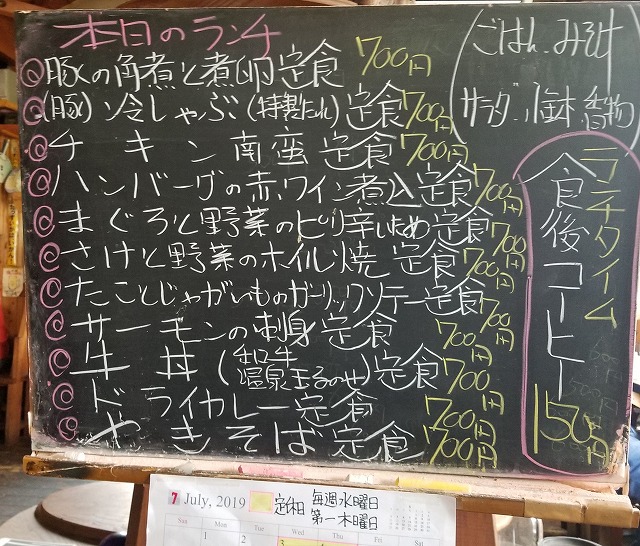 本日のランチ
◎豚の角煮と煮卵定食 700円
◎(豚)冷しゃぶ(特製たれ)定食 700円
◎チキン南蛮定食 700円
◎ハンバーグの赤ワイン煮込定食 700円
◎まぐろと野菜のピリ辛いため定食 700円
◎さけと野菜のホイル焼定食 700円
◎たことじゃがいものガーリックソテー定食 700円
◎サーモンの刺身定食 700円
◎牛丼(和牛温泉玉子のせ)定食 700円
◎ドライカレー定食 700円
◎やきそば定食 700円
ごはん、みそ汁
サラダ、小鉢、香物
ランチタイム
食後コーヒー
150円
7 July, 2019
定休日 毎週水曜日
第一木曜日
Sun Mon Tue Wed Thu Fri Sat
1 2 3 4